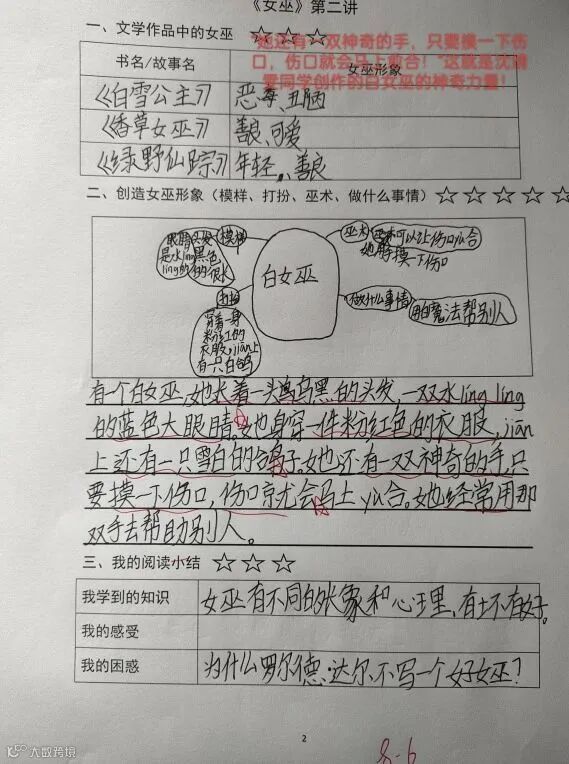 《女巫》第二讲
一、文学作品中的女巫 ☆ ☆ ☆ ☆
她还有一双神奇的手，只要摸一下伤
口，伤口就会马上愈合！"这就是沈
同学创作的白女巫的神奇力量！
书名/故事名 女巫形象
《白雪公主》 恶毒、丑陋
《香草女巫》 善良、可爱
《绿野仙踪》 年轻、善良
二、创造女巫形象（模样、打扮、巫术、做什么事情）☆ ☆ ☆ ☆ ☆
白女巫
模样
头发
黑色
的很长
眼睛
是水ling
ling的
打扮
穿着一身
粉红的
衣服，jiān上
有一只白鸽
巫术
可以让伤口yù合
她摸一下伤口
做什么事情
用白魔法帮别人
有一个白女巫，她长着一头乌黑的头发，一双水ling ling
的蓝色大眼睛。她也身穿一件粉红色的衣服，jiān
上还有一只雪白的鸽子。她还有一双神奇的手，只
要摸一下伤口，伤口就会马上yù合。她经常用那
双手去帮助别人。
三、我的阅读小结 ☆ ☆ ☆
我学到的知识 女巫有不同的长象和心里，有坏有好。
我的感受
我的困惑 为什么罗尔德·达尔不写一个好女巫？
2
8-6
大数跨境